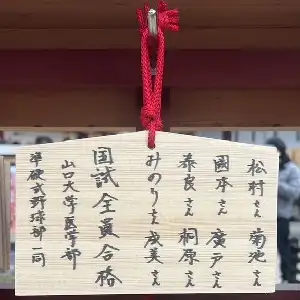 松村さん 菊池さん
國本さん 廣戸さん
泰良さん 桐原さん
みのりさん 成美さん
国試全員合格
山口大学医学部
準硬式野球部一同